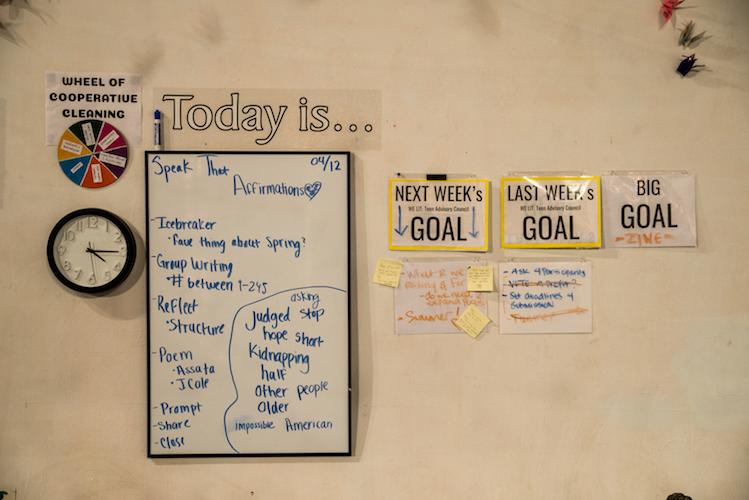 WHEEL OF
COOPERATIVE
CLEANING
Today is...
Speak That
04/12
Affirmations
- Icebreaker
• fave thing about Spring?
- Group Writing
• # between 1-245
- Reflect
• Structure
- Poem
• Assata
• J.Cole
- Prompt
- Share
- Close
asking
judged stop
hope short
Kidnapping
half
Other people
Older
impossible American
NEXT WEEK's
WE LIT: Teen Advisory Council
GOAL
LAST WEEK's
WE LIT: Teen Advisory Council
GOAL
BIG
GOAL
- ZINE -
- What R we
asking 4 for
- do we need 2
- Summer!
- Ask 4 Participants
- Set deadlines 4
Submission